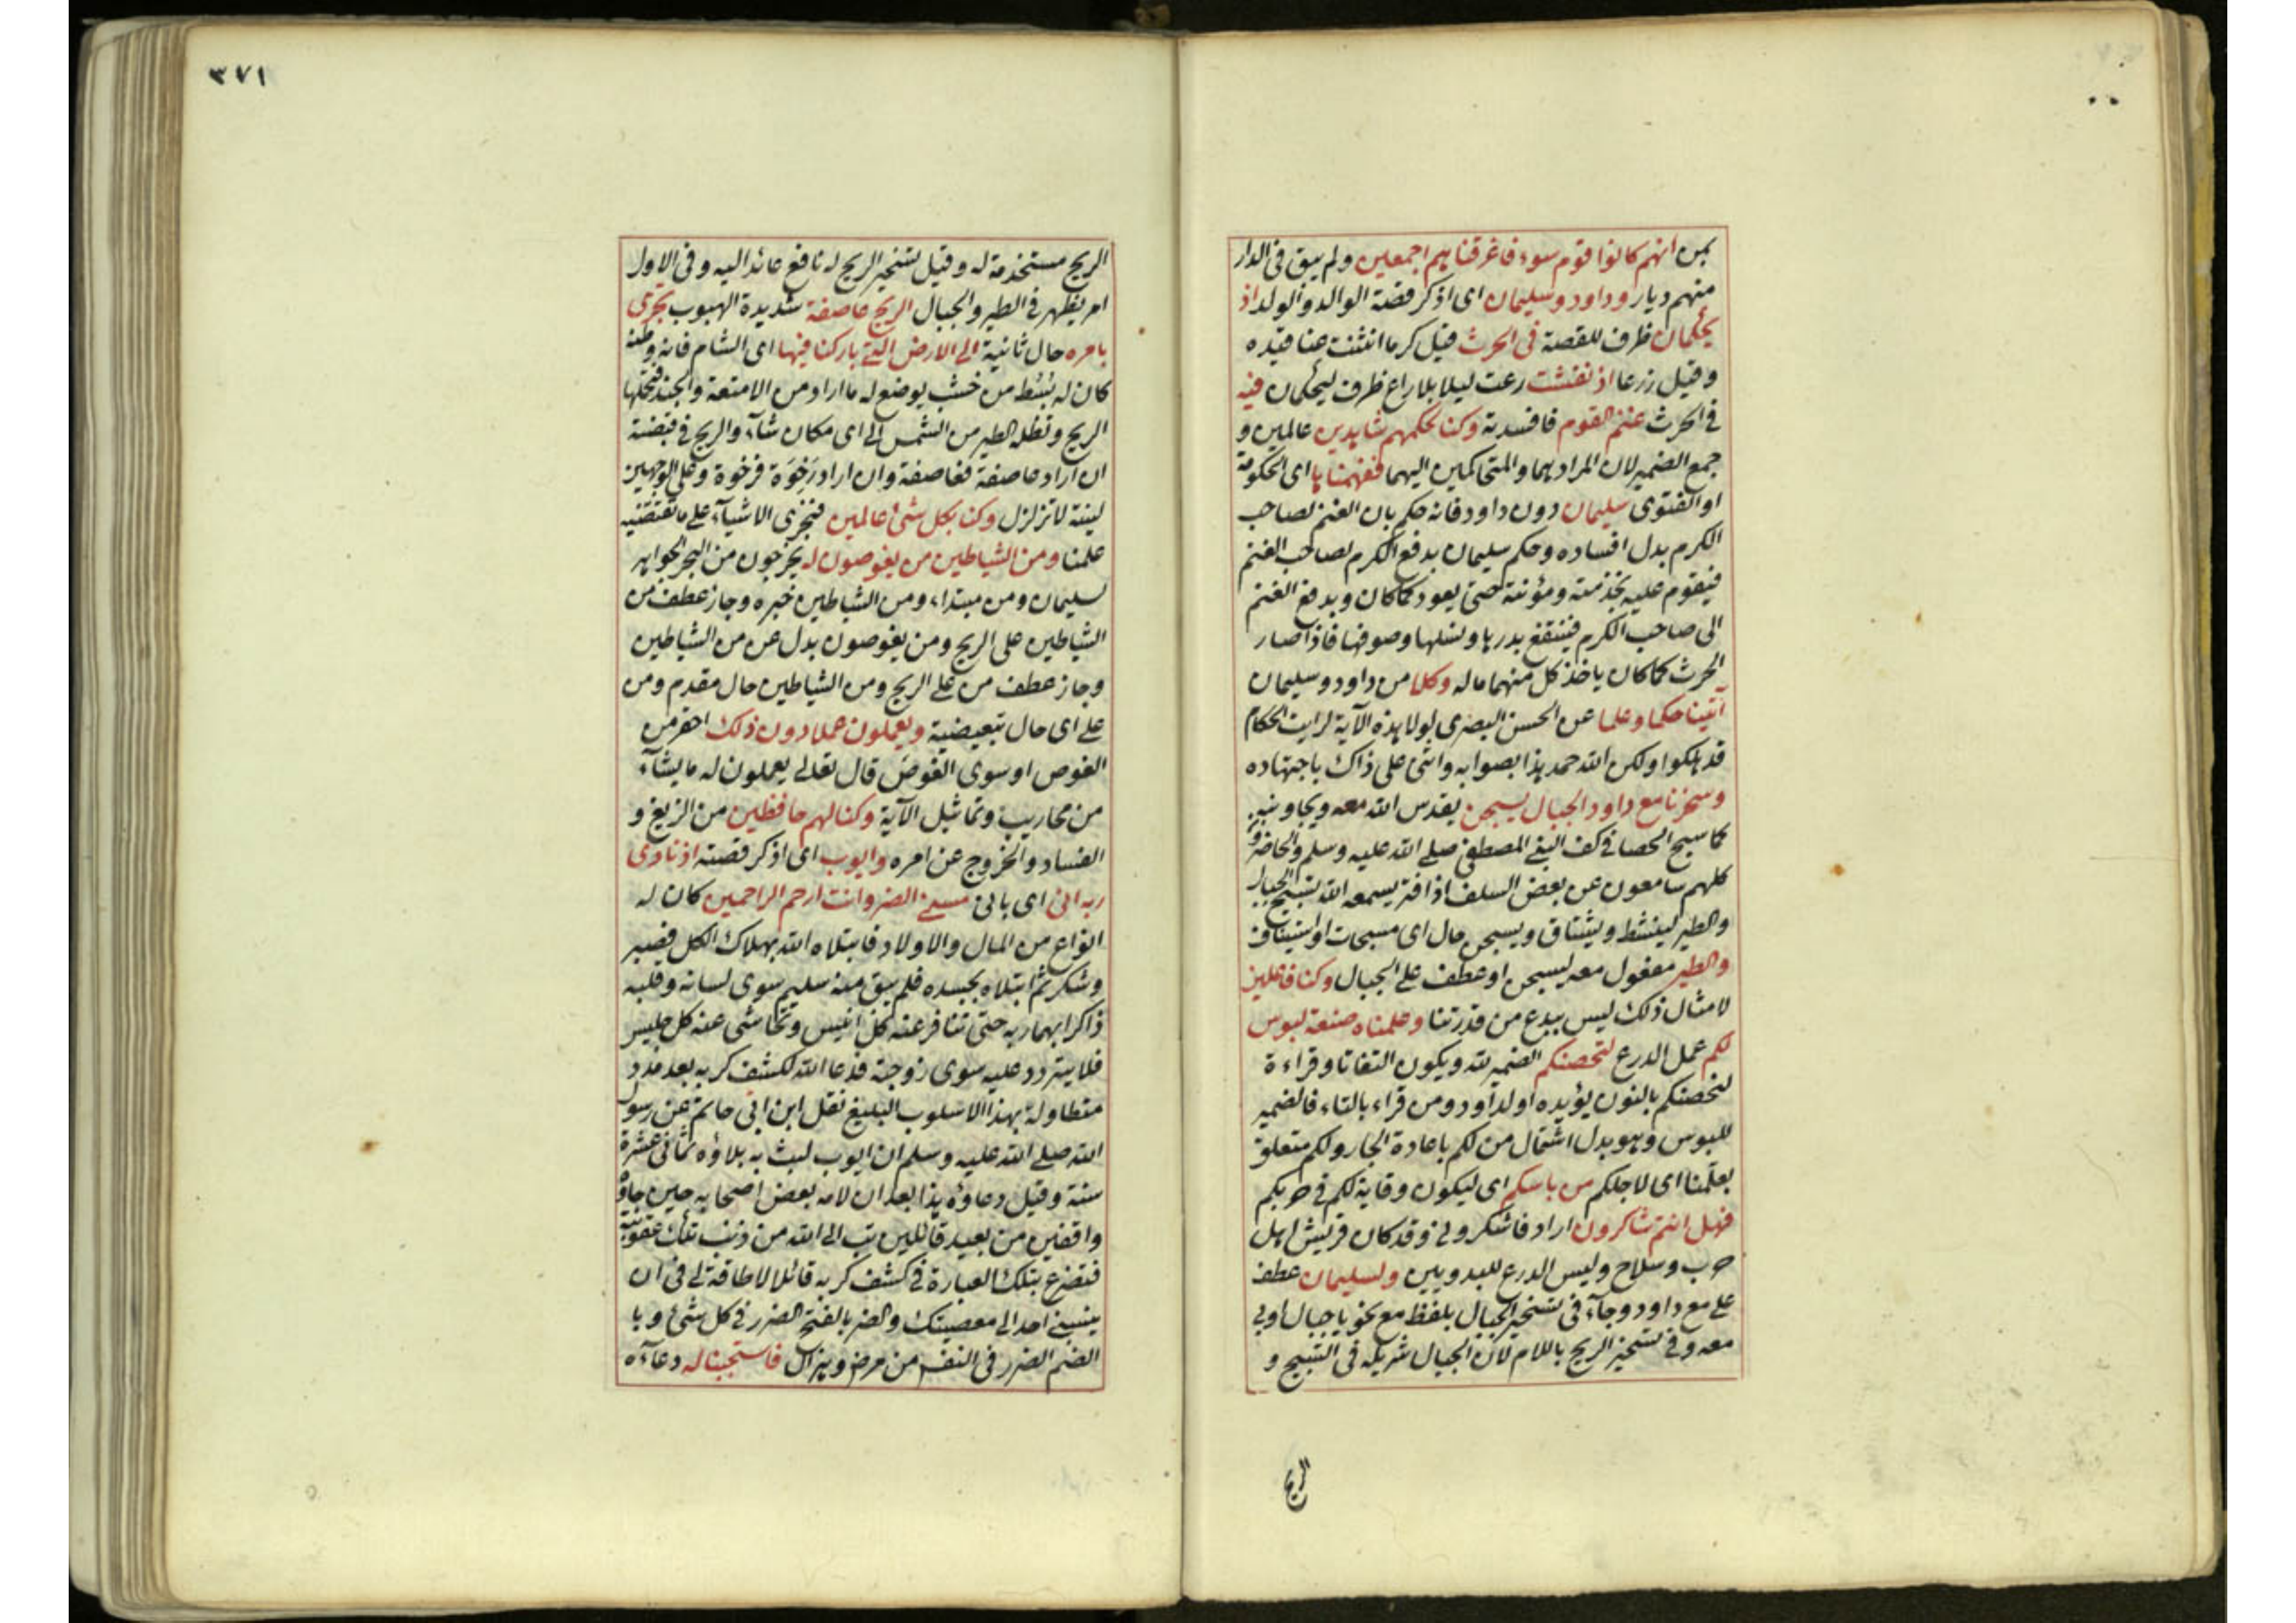 بمن انهم كانوا قوم سوء فاغرقناهم اجمعين ولم يبق فى الدار
منهم ديار وداود وسليمان اى اذكر قصة الوالد والولد اذ
يحكمان ظرف للقصة فى الحرث قيل كرما انثنت عناقيده
وقيل زرعا اذ نفشت رعت ليلا بلا راع ظرف ليحكمان فيه
فى الحرث غنم القوم فافسدته وكنا لحكمهم شاهدين عالمين و
جمع الضمير لان المراد هما والمتحاكمين اليهما ففهمناها اى الحكومة
او الفتوى سليمان دون داود فانه حكم بان الغنم لصاحب
الكرم بدل افساده وحكم سليمان بدفع الكرم لصاحب الغنم
فيقوم عليه بخدمته ومؤنته حتى يعود كما كان ويدفع الغنم
الى صاحب الكرم فينتفع بدرها ونسلها وصوفها فاذا صار
الحرث كما كان ياخذ كل منهما ماله وكلا من داود وسليمان
آتينا حكما وعلما عن الحسن البصرى لولا هذه الآية لرايت الحكام
قد هلكوا ولكن الله حمد هذا بصوابه واثنى على ذاك باجتهاده
وسخرنا مع داود الجبال يسبحن يقدس الله معه ويجاوبنه
كما سبح الحصا فى كف النبى المصطفى صلى الله عليه وسلم والحاضرون
كلهم سامعون عن بعض السلف اذا فتر يسمعه الله تسبيح الجبال
والطير لينشط ويشتاق ويسبحن حال اى مسبحات او استيناف
والطير مفعول معه ليسبحن او عطف على الجبال وكنا فاعلين
لامثال ذلك ليس ببدع من قدرتنا وعلمناه صنعة لبوس
لكم عمل الدرع لتحصنكم الضمير لله ويكون التفاتا وقراءة
لنحصنكم بالنون يؤيده او لداود ومن قراء بالتاء فالضمير
للبوس وهو بدل اشتمال من لكم باعادة الجار ولكم متعلق
بعلمنا اى لاجلكم من باسكم اى ليكون وقاية لكم فى حربكم
فهل انتم شاكرون اراد فاشكرونى وقد كان قريش اهل
حرب وسلاح وليس الدرع للبدويين ولسليمان عطف
على مع داود وجآء فى تسخير الجبال بلفظ مع نحو يا جبال اوبى
معه وفى تسخير الريح باللام لان الجبال شريكه فى التسبيح و
الريح
٣٧١
الريح مستخدمة له وقيل تسخير الريح له نافع عائد اليه وفى الاول
امر يظهر فى الطير والجبال الريح عاصفة شديدة الهبوب تجرى
بامره حال ثانية الى الارض التى باركنا فيها اى الشام فانه وطنه
كان له بسط من خشب يوضع له ما اراد من الامتعة والجند فتحملها
الريح وتظله الطير من الشمس الى اى مكان شآء والريح فى قبضته
ان اراد عاصفة فعاصفة وان اراد رخوة فرخوة وعلى الوجهين
لينة لا تزلزل وكنا بكل شئ عالمين فنجرى الاشيآء على ما تقتضيه
علمنا ومن الشياطين من يغوصون له يخرجون من البحر الجواهر
لسليمان ومن مبتداء ومن الشياطين خبره وجاز عطف من
الشياطين على الريح ومن يغوصون بدل عن من الشياطين
وجاز عطف من على الريح ومن الشياطين حال مقدم ومن
على اى حال تبعيضية ويعملون عملا دون ذلك احقر من
الغوص او سوى الغوص قال تعالى يعملون له ما يشآء
من محاريب وتماثيل الآية وكنا لهم حافظين من الزيغ و
الفساد والخروج عن امره وايوب اى اذكر قصته اذ نادى
ربه انى اى بانى مسنى الضر وانت ارحم الراحمين كان له
انواع من المال والاولاد فابتلاه الله بهلاك الكل فصبر
وشكر ثم ابتلاه بجسده فلم يبق منه سليم سوى لسانه وقلبه
ذاكرا بهما ربه حتى تنافر عنه كل انيس وتحاشى عنه كل جليس
فلا يتردد عليه سوى زوجته فدعا الله لكشف كربه بعد مدد
متطاولة بهذا الاسلوب البليغ نقل ابن ابى حاتم عن رسول
الله صلى الله عليه وسلم ان ايوب لبث به بلاؤه ثمانى عشرة
سنة وقيل دعاؤه هذا بعد ان لامه بعض اصحابه حين جاؤ
واقفين من بعيد قائلين تب الى الله من ذنب تلك عقوبته
فتضرع بتلك العبارة فى كشف كربه قائلا لا طاقة لى فى ان
ينسبنى احد الى معصيتك والضر بالفتح الضرر فى كل شئ وبا
الضم الضرر فى النفس من مرض وهزال فاستجبنا له دعآءه